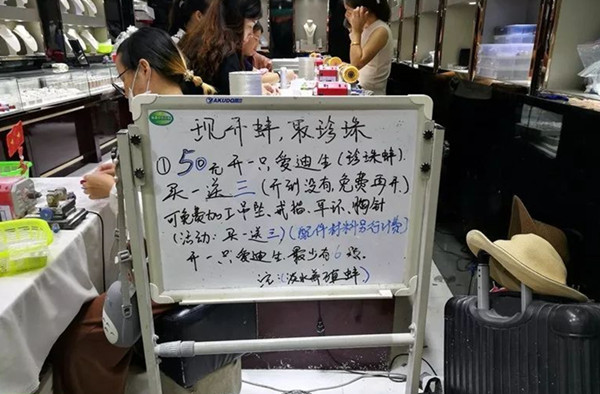 AKUDOR
现开蚌，取珍珠
① 50元开一只爱迪生(珍珠蚌).
买一送三(开到没有,免费再开)
可免费加工吊坠、戒指、耳环、胸针
(活动：买一送三)(配件材料另行计费)
开一只爱迪生最少有6颗.
注:(淡水养殖蚌)